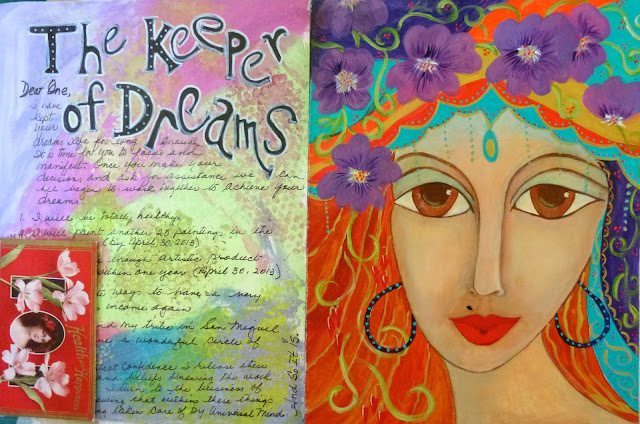 The Keeper
of Dreams
Dear One,
I have
kept
your
dreams safe for long enough.
It is time for you to focus and
manifest. Once you make your
decisions and ask for assistance we can
all begin to work together to achieve your
dreams.
1. I will be totally healthy.
will paint another 20 paintings in the
(By April 30, 2013)
enough artistic product
within one year (April 30, 2013)
ways to have a very
income again
my tribe in San Miguel
a wonderful circle of
Confidence I release these
and beliefs knowing the work
return to the business of
knowing that within these things
taken care of by Universal Mind
and So It Is.
Health